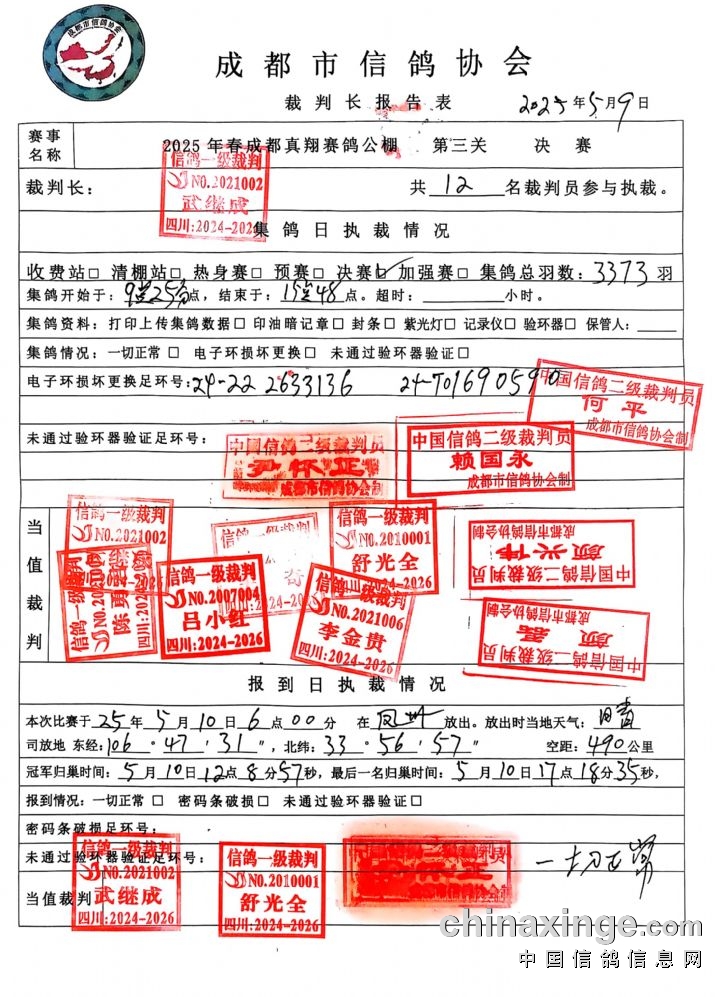 成都市信鸽协会
成都市信鸽协会
裁判长报告表 2025年5月9日
赛事名称 2025年春成都真翔赛鸽公棚 第三关 决赛
信鸽一级裁判
NO.2021002
武继成
四川:2024-2026
裁判长: 共12名裁判员参与执裁。
集鸽日执裁情况
收费站□ 清棚站□ 热身赛□ 预赛□ 决赛☑ 加强赛□ 集鸽总羽数:3373羽
集鸽开始于:9点25分点,结束于:15点48点。超时: 小时。
集鸽资料:打印上传集鸽数据□ 印油暗记章□ 封条□ 紫光灯□ 记录仪□ 验环器□ 保管人:
集鸽情况:一切正常□ 电子环损坏更换□ 未通过验环器验证□
电子环损坏更换足环号:24-22 2633136 24-T01690590
中国信鸽二级裁判员
何平
成都市信鸽协会制
未通过验环器验证足环号:
中国信鸽二级裁判员
尹怀正
成都市信鸽协会制
中国信鸽二级裁判员
赖国永
成都市信鸽协会制
当值裁判
信鸽一级裁判
NO.2021002
信鸽一级裁判
陈
四川:2024-2026
信鸽一级裁判
NO.2007004
吕小红
四川:2024-2026
信鸽一级裁判
信鸽一级裁判
NO.2010001
舒光全
四川:2024-2026
信鸽一级裁判
NO.2021006
李金贵
四川:2024-2026
中国信鸽二级裁判员
颜兴伟
成都市信鸽协会制
中国信鸽二级裁判员
颜磊
成都市信鸽协会制
报到日执裁情况
本次比赛于25年5月10日6点00分 在凤州放出。放出时当地天气:晴
司放地 东经:106°47′31″,北纬:33°56′57″ 空距:490公里
冠军归巢时间:5月10日12点8分57秒,最后一名归巢时间:5月10日17点18分35秒,
报到情况:一切正常□ 密码条破损□ 未通过验环器验证□
密码条破损足环号:
未通过验环器验证足环号: 一切正常
当值裁判
信鸽一级裁判
NO.2021002
武继成
四川:2024-2026
信鸽一级裁判
NO.2010001
舒光全
四川:2024-2026
chinaxinge.com
中国信鸽信息网